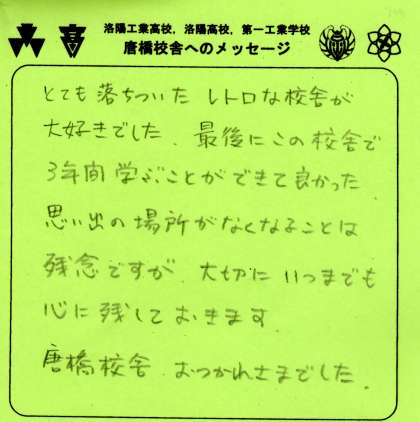 洛陽工業高校，洛陽高校，第一工業学校
唐橋校舎へのメッセージ
とても落ちついた レトロな校舎が
大好きでした．最後にこの校舎で
3年間 学ぶことができて良かった
思い出の場所がなくなることは
残念ですが 大切に いつまでも
心に残しておきます
唐橋校舎 おつかれさまでした．